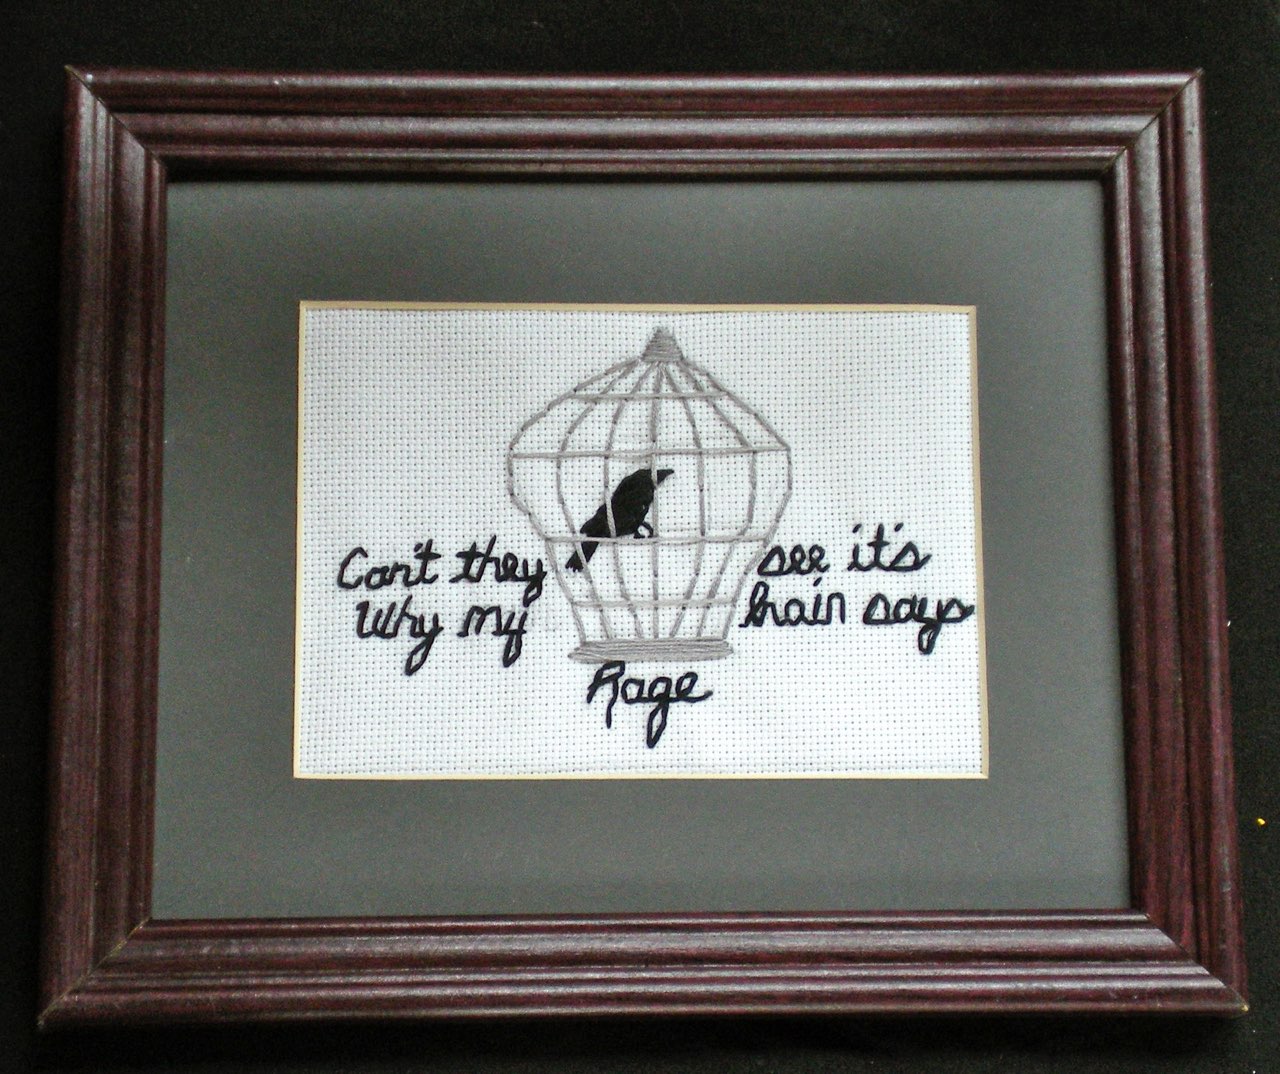 Can't they see it's
Why my brain says
Rage